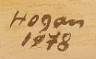 Hogan
1978